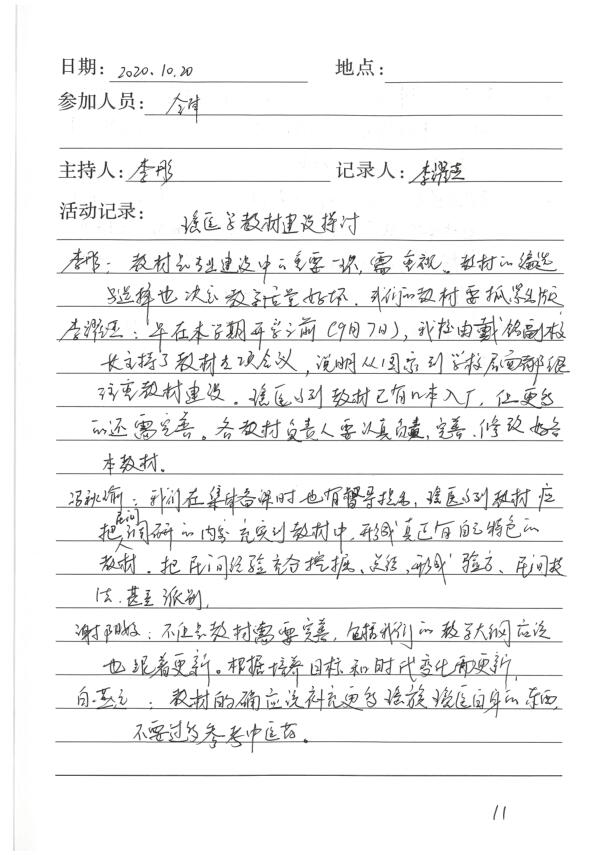 日期: 2020.10.20 地点:
参加人员: 全体
主持人: 李彤 记录人: 李耀燕
活动记录:
瑶医学教材建设探讨
李彤：教材是专业建设中的重要一环，需重视。教材的编选
与选择也决定教学质量好坏。我们的教材要抓紧出版
李耀燕：早在本学期开学之前(9月7日)，我校由戴铭副校
长主持了教材专项会议，说明从国家到学校层面都很
注重教材建设。瑶医系列教材已有几本入厂，但更多
的还需完善。各教材负责人要认真负责，完善、修改好各
本教材。
冯秋瑜：我们在集体备课时也有督导指出，瑶医系列教材应
把民间调研的内容充实到教材中，形成真正有自己特色的
教材。把民间经验充分挖掘、总结、形成验方、民间技
法、甚至派别。
谢阳姣：不止是教材需要完善，包括我们的教学大纲应该
也跟着更新。根据培养目标和时代变化而更新，
白燕：教材的确应该补充更多瑶族瑶医自身的东西，
不要过多参考中医药。
11